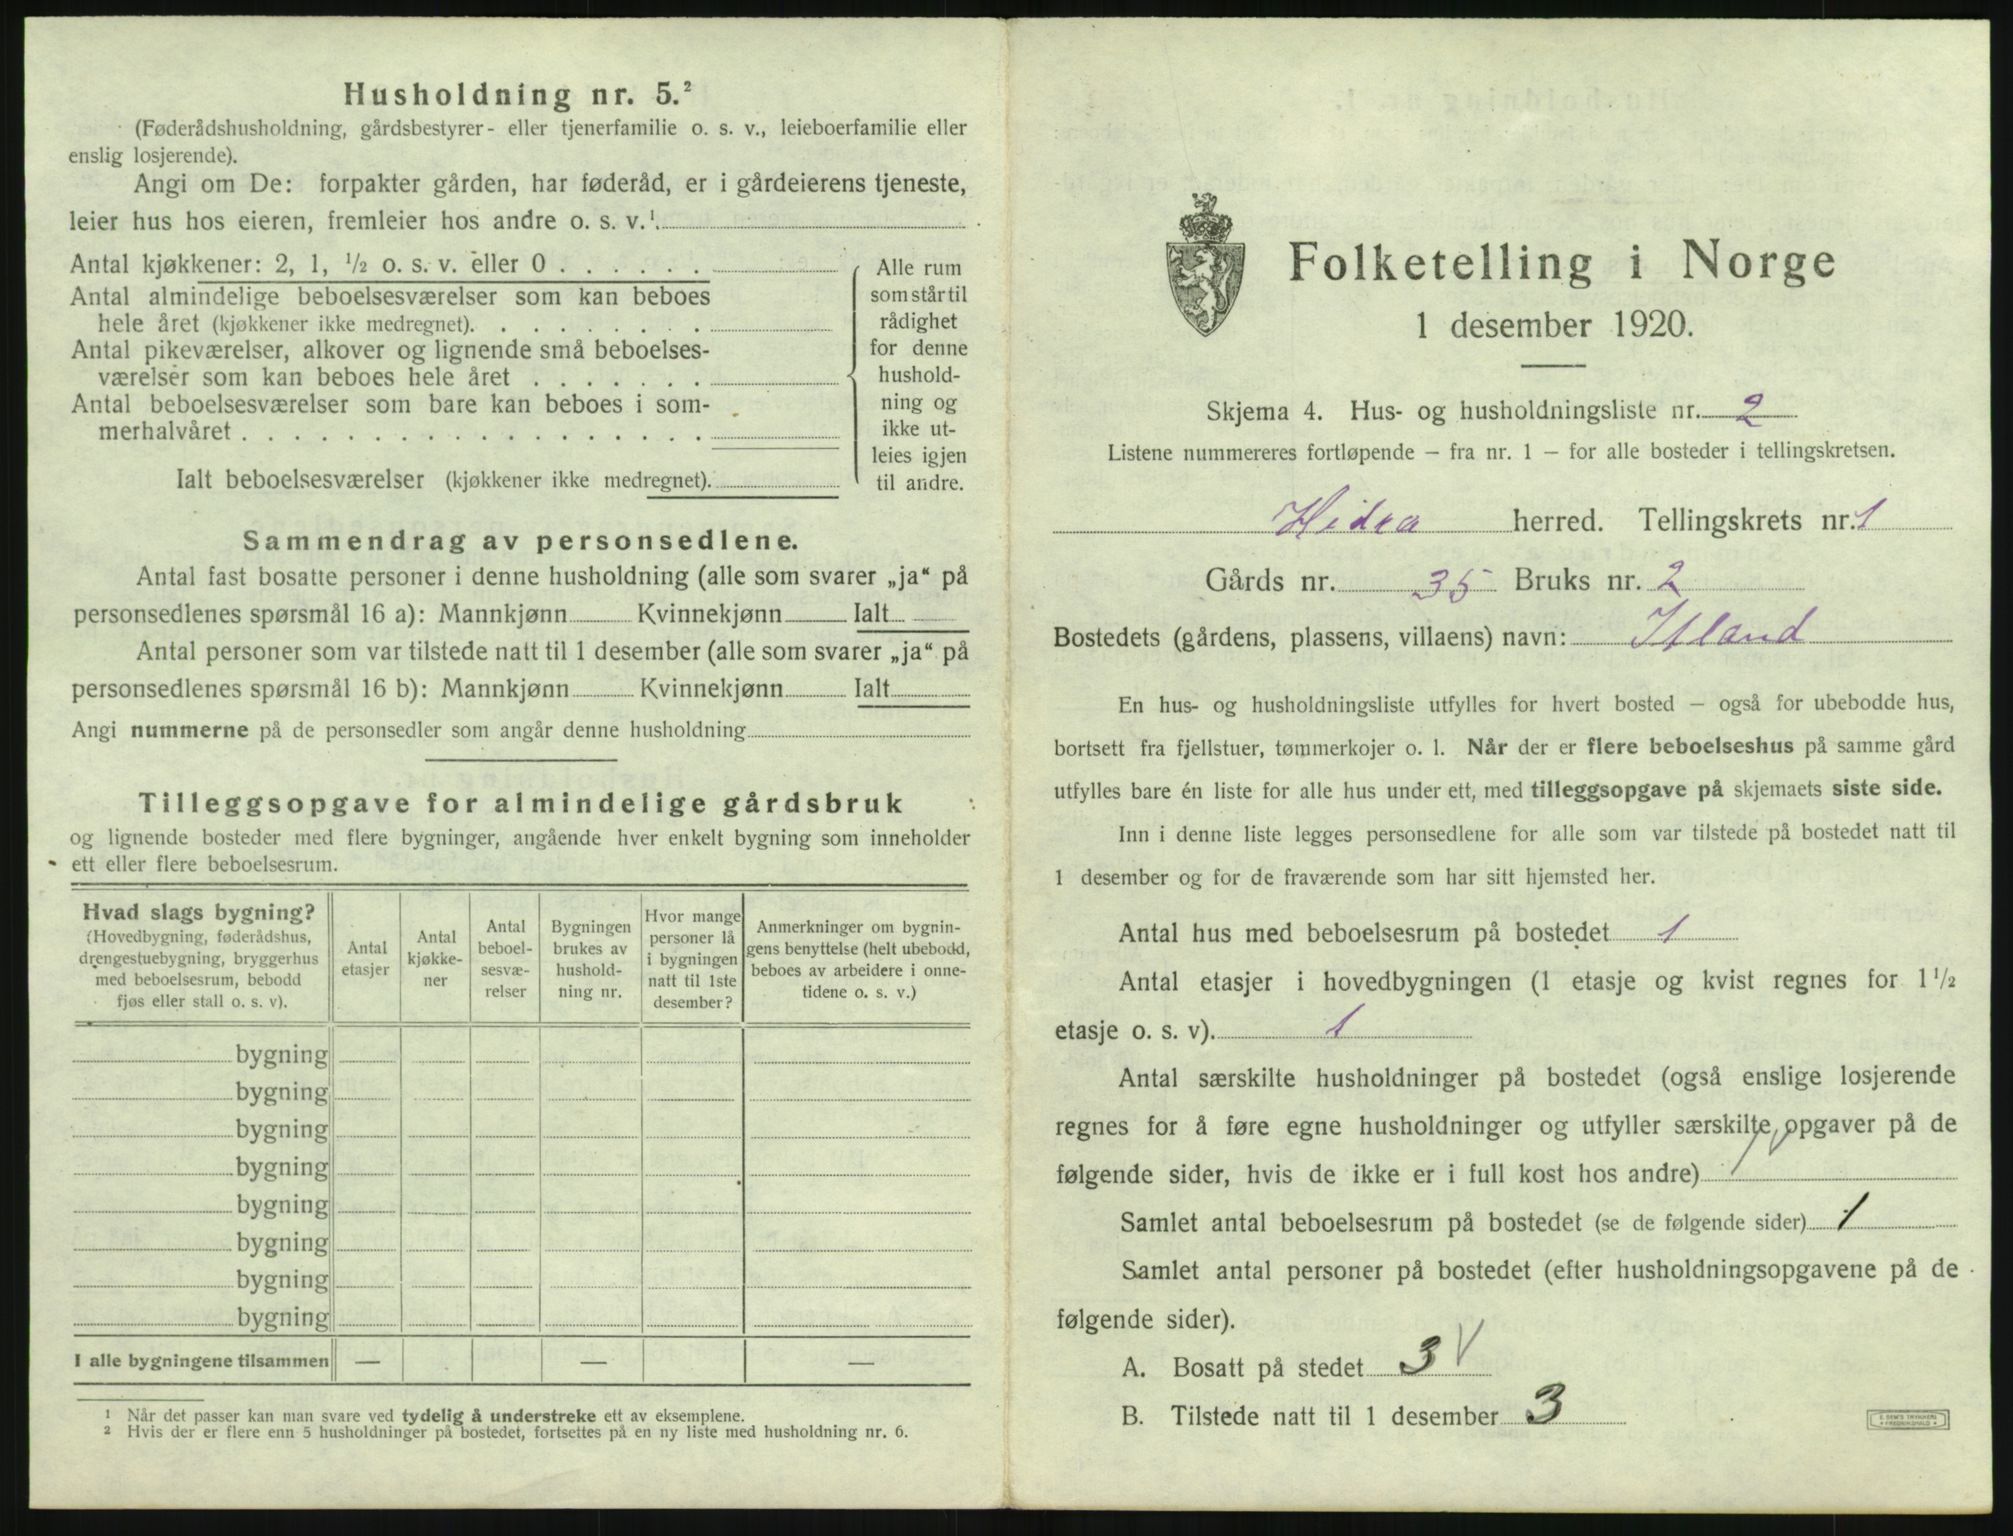 Husholdning nr. 5.²
(Føderådshusholdning, gårdsbestyrer- eller tjenerfamilie o. s. v., leieboerfamilie eller
enslig losjerende).
Angi om De: forpakter gården, har føderåd, er i gårdeierens tjeneste,
leier hus hos eieren, fremleier hos andre o. s. v.¹.
Antal kjøkkener: 2, 1, ½ o. s. v. eller 0 . . . . . .
Antal almindelige beboelsesværelser som kan beboes
hele året (kjøkkener ikke medregnet). . . . . . . . .
Antal pikeværelser, alkover og lignende små beboelses-
værelser som kan beboes hele året . . . . . . .
Antal beboelsesværelser som bare kan beboes i som-
merhalvåret . . . . . . . . . . . . . . . . . .
Ialt beboelsesværelser (kjøkkener ikke medregnet).
Alle rum
som står til
rådighet
for denne
hushold-
ning og
ikke ut-
leies igjen
til andre.
Sammendrag av personsedlene.
Antal fast bosatte personer i denne husholdning (alle som svarer „ja“ på
personsedlenes spørsmål 16 a): Mannkjønn Kvinnekjønn Ialt
Antal personer som var tilstede natt til 1 desember (alle som svarer „ja“ på
personsedlenes spørsmål 16 b): Mannkjønn Kvinnekjønn Ialt
Angi nummerne på de personsedler som angår denne husholdning
Tilleggsopgave for almindelige gårdsbruk
og lignende bosteder med flere bygninger, angående hver enkelt bygning som inneholder
ett eller flere beboelsesrum.
Hvad slags bygning?
(Hovedbygning, føderådshus,
drengestuebygning, bryggerhus
med beboelsesrum, bebodd
fjøs eller stall o. s. v).
Antal
etasjer
Antal
kjøkke-
ner
Antal
beboel-
sesvæ-
relser
Bygningen
brukes av
hushold-
ning nr.
Hvor mange
personer lå
i bygningen
natt til 1ste
desember?
Anmerkninger om bygnin-
gens benyttelse (helt ubebodd,
beboes av arbeidere i onne-
tidene o. s. v.)
bygning
bygning
bygning
bygning
bygning
bygning
bygning
bygning
I alle bygningene tilsammen — — —
¹ Når det passer kan man svare ved tydelig å understreke ett av eksemplene.
² Hvis der er flere enn 5 husholdninger på bostedet, fortsettes på en ny liste med husholdning nr. 6.
Folketelling i Norge
1 desember 1920.
Skjema 4. Hus- og husholdningsliste nr. 2
Listene nummereres fortløpende – fra nr. 1 – for alle bosteder i tellingskretsen.
Hidra herred. Tellingskrets nr. 1
Gårds nr. 35 Bruks nr. 2
Bostedets (gårdens, plassens, villaens) navn: Itland
En hus- og husholdningsliste utfylles for hvert bosted – også for ubebodde hus,
bortsett fra fjellstuer, tømmerkojer o. l. Når der er flere beboelseshus på samme gård
utfylles bare én liste for alle hus under ett, med tilleggsopgave på skjemaets siste side.
Inn i denne liste legges personsedlene for alle som var tilstede på bostedet natt til
1 desember og for de fraværende som har sitt hjemsted her.
Antal hus med beboelsesrum på bostedet 1
Antal etasjer i hovedbygningen (1 etasje og kvist regnes for 1½
etasje o. s. v). 1
Antal særskilte husholdninger på bostedet (også enslige losjerende
regnes for å føre egne husholdninger og utfyller særskilte opgaver på de
følgende sider, hvis de ikke er i full kost hos andre) 1 V
Samlet antal beboelsesrum på bostedet (se de følgende sider) 1
Samlet antal personer på bostedet (efter husholdningsopgavene på de
følgende sider).
A. Bosatt på stedet 3 V
B. Tilstede natt til 1 desember 3
E. SEM'S TRYKKERI
FREDRIKSHALD